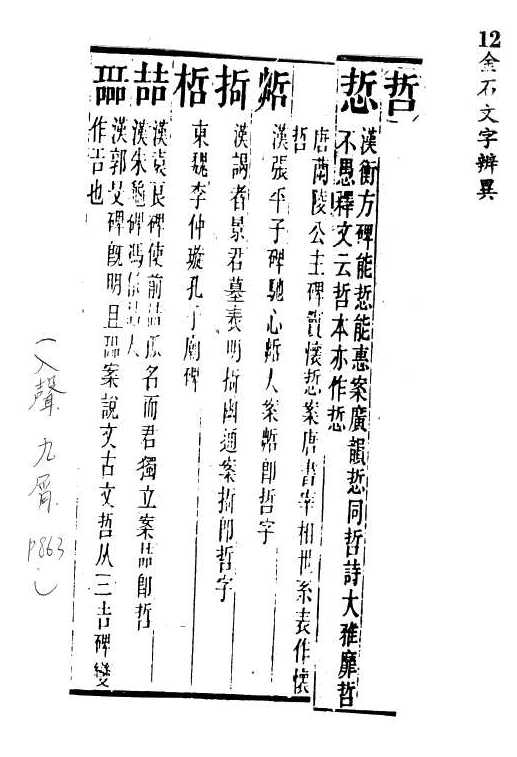 12金石文字辨異
哲
悊
漢衡方碑能悊能惠案廣韻悊同哲詩大雅靡哲
不愚釋文云哲本亦作悊
唐蘭陵公主碑賢懷悊案唐書宰相世系表作懷
哲
漢張平子碑馳心人案即哲字
漢謁者景君墓表明幽通案即哲字
東魏李仲璇孔子廟碑
喆
漢袁良碑使前喆孤名而君獨立案喆即哲
漢朱龜碑馮依喆人
漢郭旻碑旣明且案說文古文哲从三吉碑變
作吉也
入聲 九屑 p863